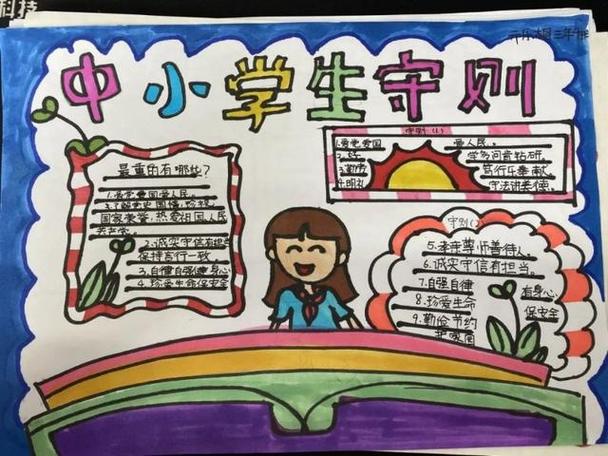 科技
中小学生守则
最重要的有哪些?
1.爱党爱国爱人民。
国家荣誉,热爱祖国,人民
2.诚实守信有担当
保持言行一致。
3.自律自强健身心
4.珍爱生命保安全
守则(1)
1.爱党爱国 爱人民。
学多问肯钻研。
笃行乐奉献
4.明礼 守法讲美德。
守则(2)
5.孝亲尊师善待人。
6.诚实守信有担当。
7.自强自律 健身心。
8.珍爱生命 保安全
9.勤俭节约
护家园